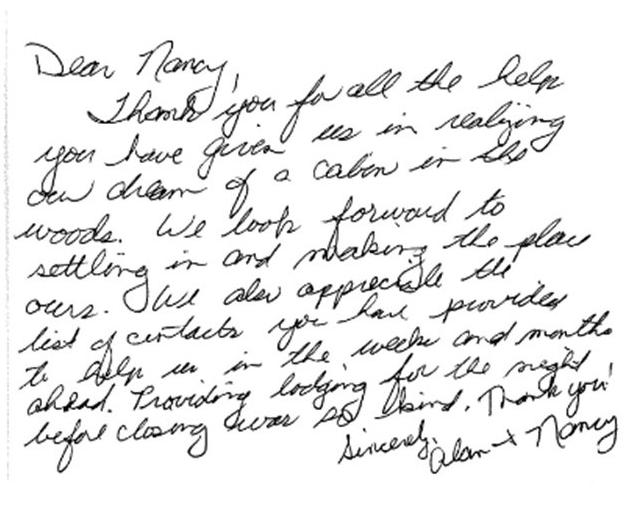 Dear Nancy,
Thank you for all the help
you have given us in realizing
our dream of a cabin in the
woods. We look forward to
settling in and making the place
ours. We also appreciate the
list of contacts you have provided
to help us in the weeks and months
ahead. Providing lodging for the night
before closing was so kind. Thank you!
Sincerely,
Alan + Nancy